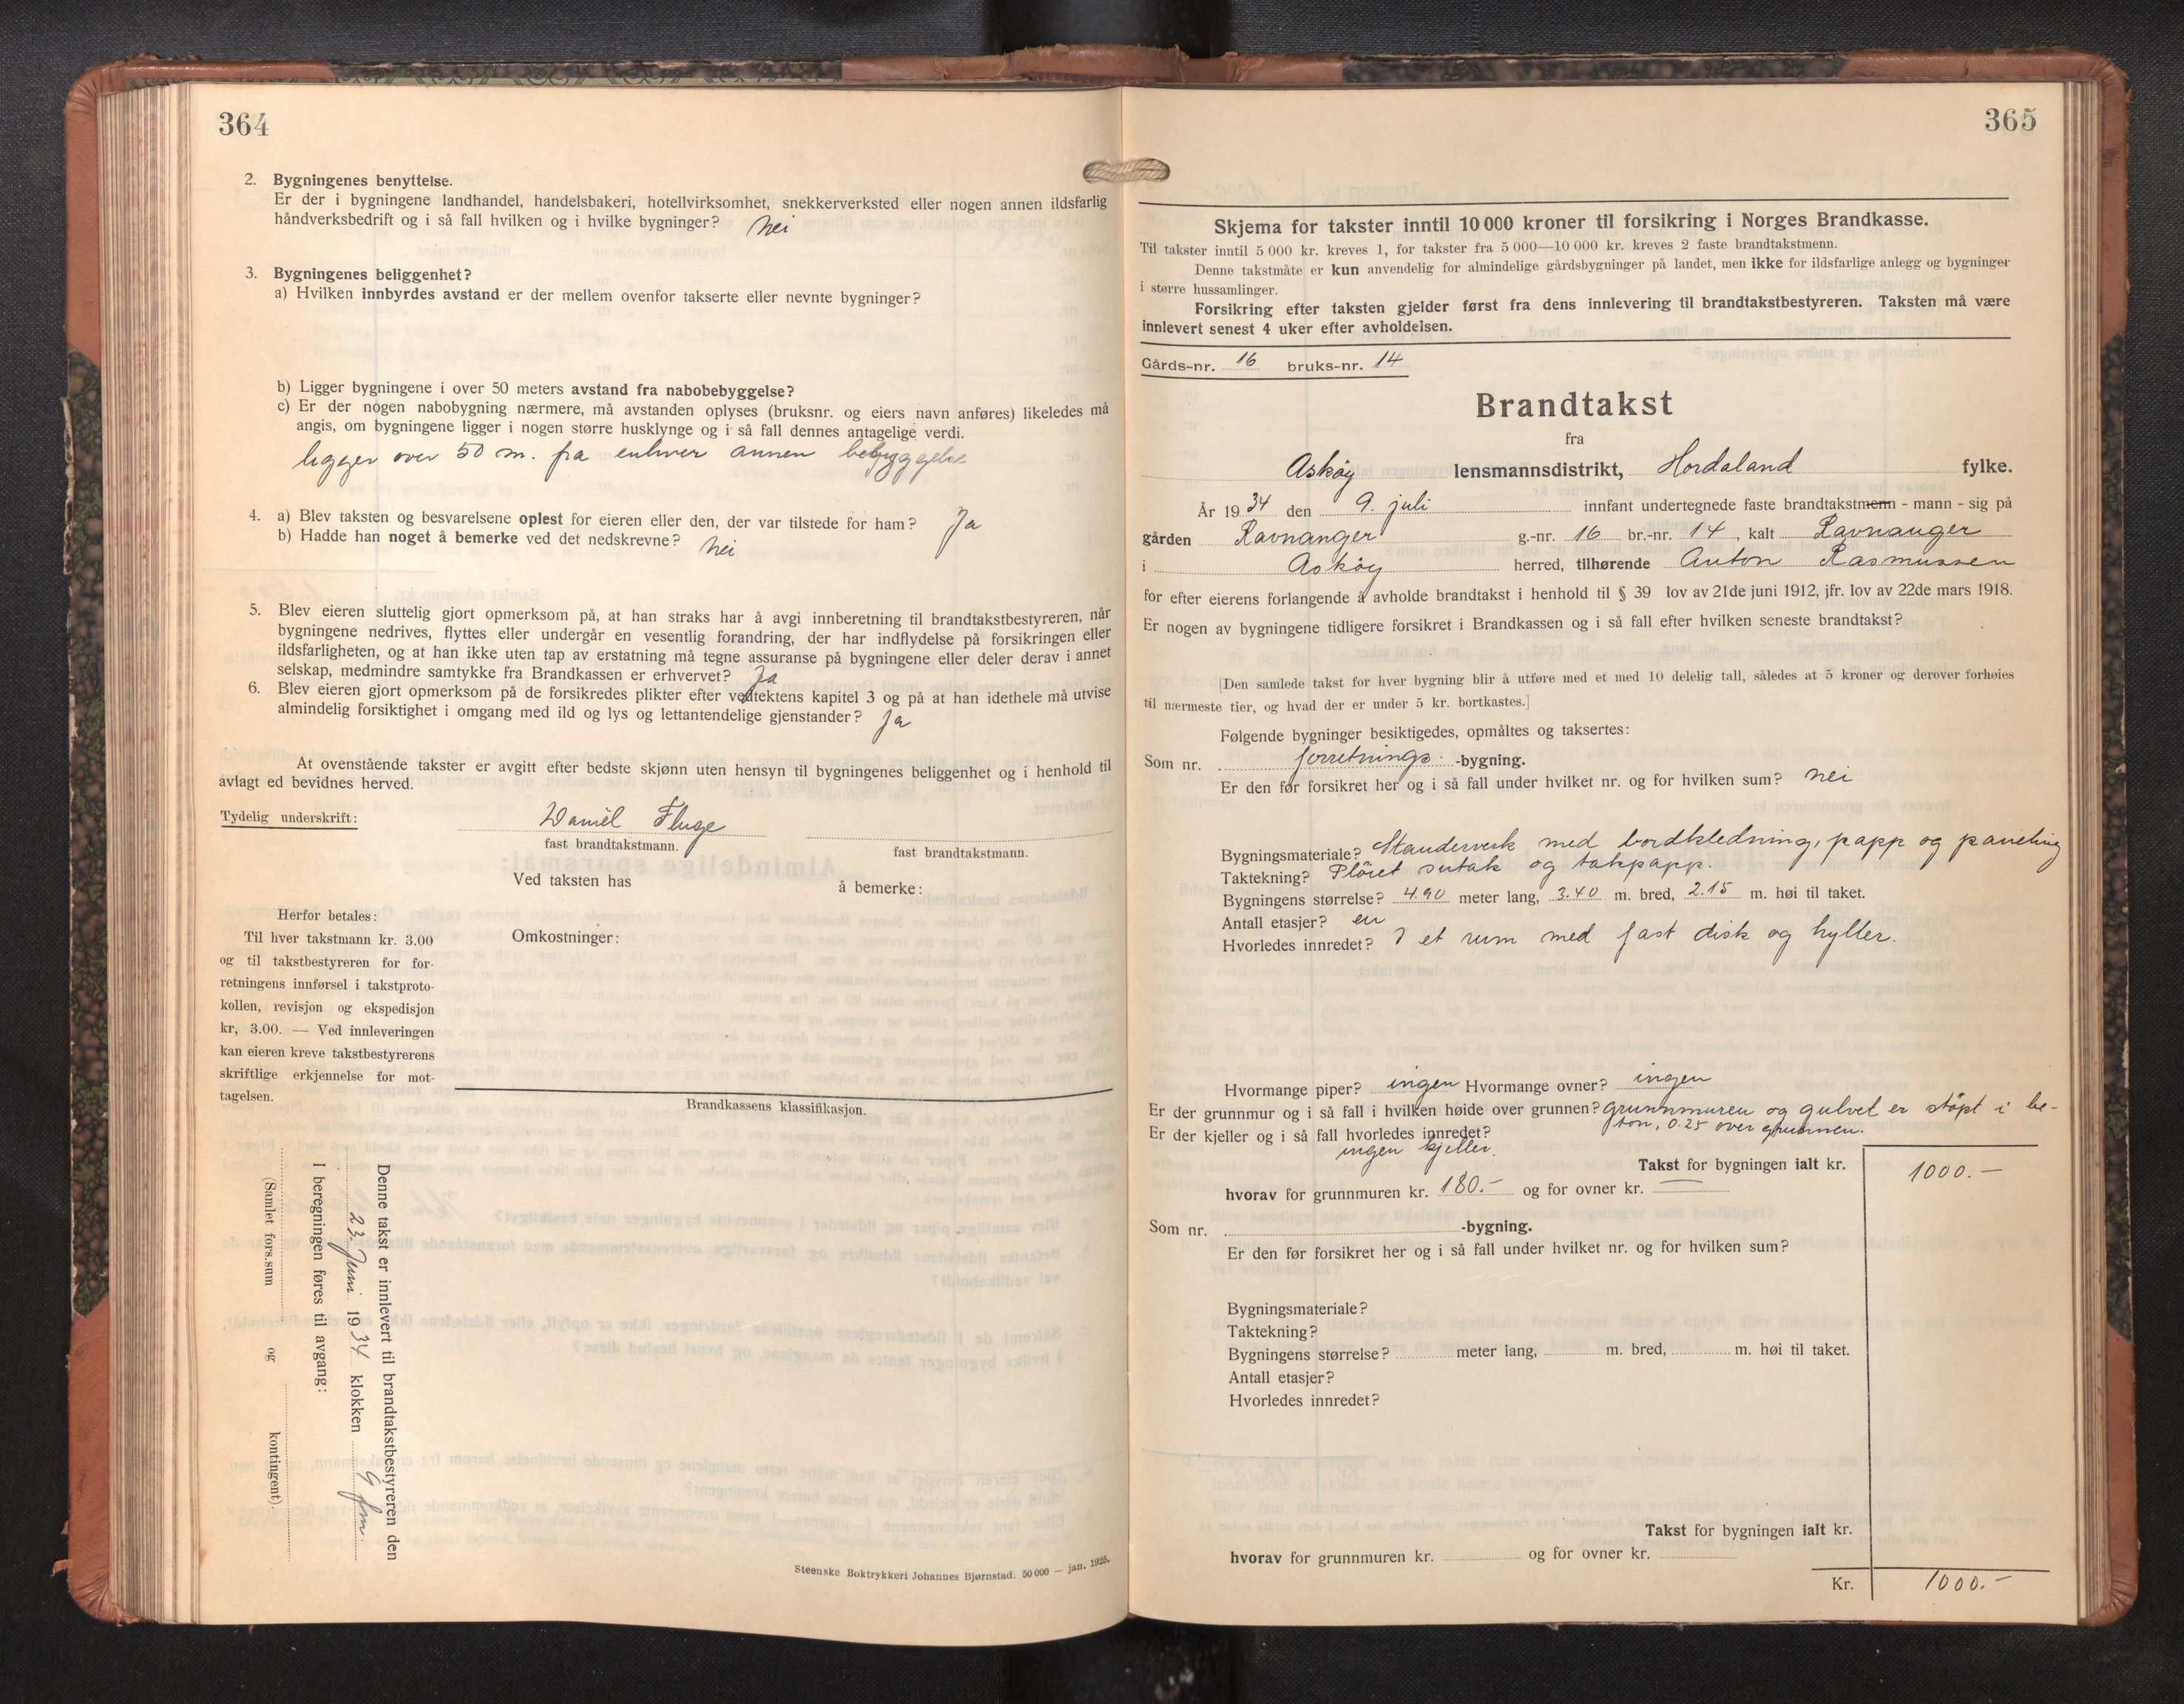 364
2. Bygningenes benyttelse.
Er der i bygningene landhandel, handelsbakeri, hotellvirksomhet, snekkerverksted eller nogen annen ildsfarlig
håndverksbedrift og i så fall hvilken og i hvilke bygninger? Nei
3. Bygningenes beliggenhet?
a) Hvilken innbyrdes avstand er der mellem ovenfor takserte eller nevnte bygninger?
b) Ligger bygningene i over 50 meters avstand fra nabobebyggelse?
c) Er der nogen nabobygning nærmere, må avstanden oplyses (bruksnr. og eiers navn anføres) likeledes må
angis, om bygningene ligger i nogen større husklynge og i så fall dennes antagelige verdi.
ligger over 50 m. fra enhver annen bebyggelse
4. a) Blev taksten og besvarelsene oplest for eieren eller den, der var tilstede for ham? Ja
b) Hadde han noget å bemerke ved det nedskrevne? Nei
5. Blev eieren sluttelig gjort opmerksom på, at han straks har å avgi innberetning til brandtakstbestyreren, når
bygningene nedrives, flyttes eller undergår en vesentlig forandring, der har indflydelse på forsikringen eller
ildsfarligheten, og at han ikke uten tap av erstatning må tegne assuranse på bygningene eller deler derav i annet
selskap, medmindre samtykke fra Brandkassen er erhvervet? Ja
6. Blev eieren gjort opmerksom på de forsikredes plikter efter vedtektens kapitel 3 og på at han idethele må utvise
almindelig forsiktighet i omgang med ild og lys og lettantendelige gjenstander? Ja
At ovenstående takster er avgitt efter bedste skjønn uten hensyn til bygningenes beliggenhet og i henhold til
avlagt ed bevidnes herved.
Tydelig underskrift: Daniel Fluge
fast brandtakstmann. fast brandtakstmann.
Ved taksten has å bemerke:
Herfor betales:
Til hver takstmann kr. 3.00
og til takstbestyreren for for-
retningens innførsel i takstproto-
kollen, revisjon og ekspedisjon
kr, 3.00. — Ved innleveringen
kan eieren kreve takstbestyrerens
skriftlige erkjennelse for mot-
tagelsen.
Omkostninger:
Brandkassens klassifikasjon.
Denne takst er innlevert til brandtakstbestyreren den
23. Juni 1934 klokken 9 fm.
I beregningen føres til avgang:
(Samlet fors.sum og kontingent).
Steenske Boktrykkeri Johannes Bjørnstad. 50 000 — jan. 1928.
365
Skjema for takster inntil 10 000 kroner til forsikring i Norges Brandkasse.
Til takster inntil 5 000 kr. kreves 1, for takster fra 5 000—10 000 kr. kreves 2 faste brandtakstmenn.
Denne takstmåte er kun anvendelig for almindelige gårdsbygninger på landet, men ikke for ildsfarlige anlegg og bygninger
i større hussamlinger.
Forsikring efter taksten gjelder først fra dens innlevering til brandtakstbestyreren. Taksten må være
innlevert senest 4 uker efter avholdelsen.
Gårds-nr. 16 bruks-nr. 14
Brandtakst
fra
Askøy lensmannsdistrikt, Hordaland fylke.
År 1934 den 9. juli innfant undertegnede faste brandtakstmenn - mann - sig på
gården Ravnanger g.-nr. 16 br.-nr. 14, kalt Ravnanger
i Askøy herred, tilhørende Anton Rasmussen
for efter eierens forlangende å avholde brandtakst i henhold til § 39 lov av 21de juni 1912, jfr. lov av 22de mars 1918.
Er nogen av bygningene tidligere forsikret i Brandkassen og i så fall efter hvilken seneste brandtakst?
[Den samlede takst for hver bygning blir å utføre med et med 10 delelig tall, således at 5 kroner og derover forhøies
til nærmeste tier, og hvad der er under 5 kr. bortkastes.]
Følgende bygninger besiktigedes, opmåltes og taksertes:
Som nr. forretnings- -bygning.
Er den før forsikret her og i så fall under hvilket nr. og for hvilken sum? nei
Bygningsmateriale? Standerverk med bordkledning, papp og paneling
Taktekning? Pløiet sutak og takpapp.
Bygningens størrelse? 4.90 meter lang, 3.40 m. bred, 2.15 m. høi til taket.
Antall etasjer? en
Hvorledes innredet? I et rum med fast disk og hyller.
Hvormange piper? ingen Hvormange ovner? ingen
Er der grunnmur og i så fall i hvilken høide over grunnen? Grunnmuren og gulvet er støpt i be-
ton, 0.25 over grunnen.
Er der kjeller og i så fall hvorledes innredet?
ingen kjeller.
Takst for bygningen ialt kr. 1000.-
hvorav for grunnmuren kr. 180.- og for ovner kr. —
Som nr. -bygning.
Er den før forsikret her og i så fall under hvilket nr. og for hvilken sum?
Bygningsmateriale?
Taktekning?
Bygningens størrelse? meter lang, m. bred, m. høi til taket.
Antall etasjer?
Hvorledes innredet?
Takst for bygningen ialt kr.
hvorav for grunnmuren kr. og for ovner kr.
Kr. 1000.-